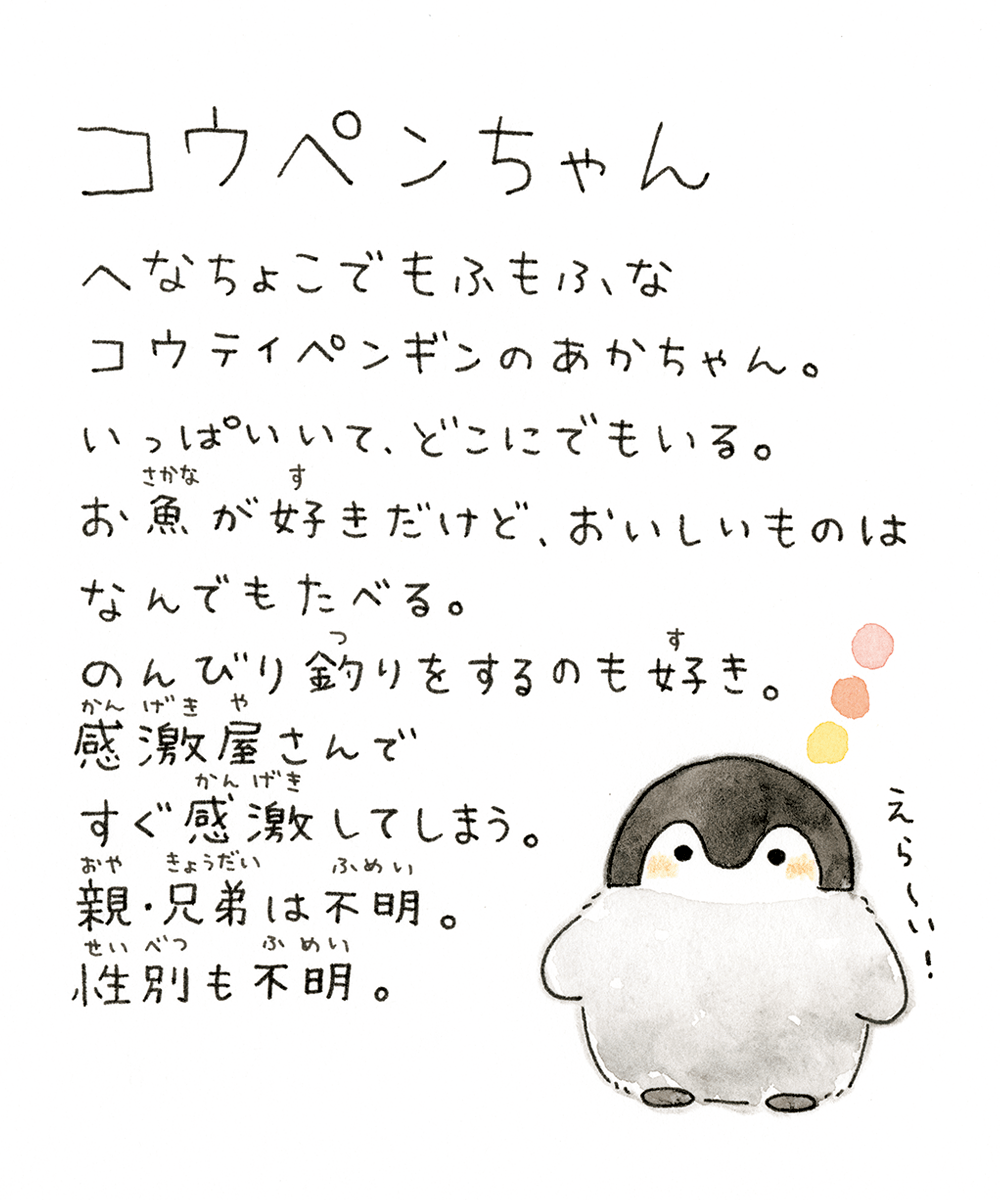 コウペンちゃん
へなちょこでもふもふな
コウテイペンギンのあかちゃん。
いっぱいいて、どこにでもいる。
さかな す
お魚が好きだけど、おいしいものは
なんでもたべる。
つ す
のんびり釣りをするのも好き。
かん げき や
感激屋さんで
かん げき
すぐ感激してしまう。
おや きょうだい ふめい
親・兄弟は不明。
せい べつ ふ めい
性別も不明。
えら〜い!